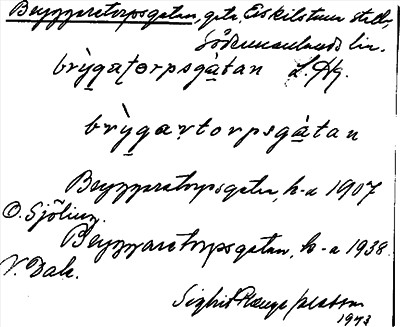 Bryggaretorpsgatan, gata, Eskilstuna stad,
Södermanlands län.
brỳgaṭorpsgàtan L. Hg.
brỳgartorpsgàtan
Bryggaretorpsgatan, h-a 1907
O. Sjöling.
Bryggaretorpsgatan, h-a 1938
V. Dak.
1973